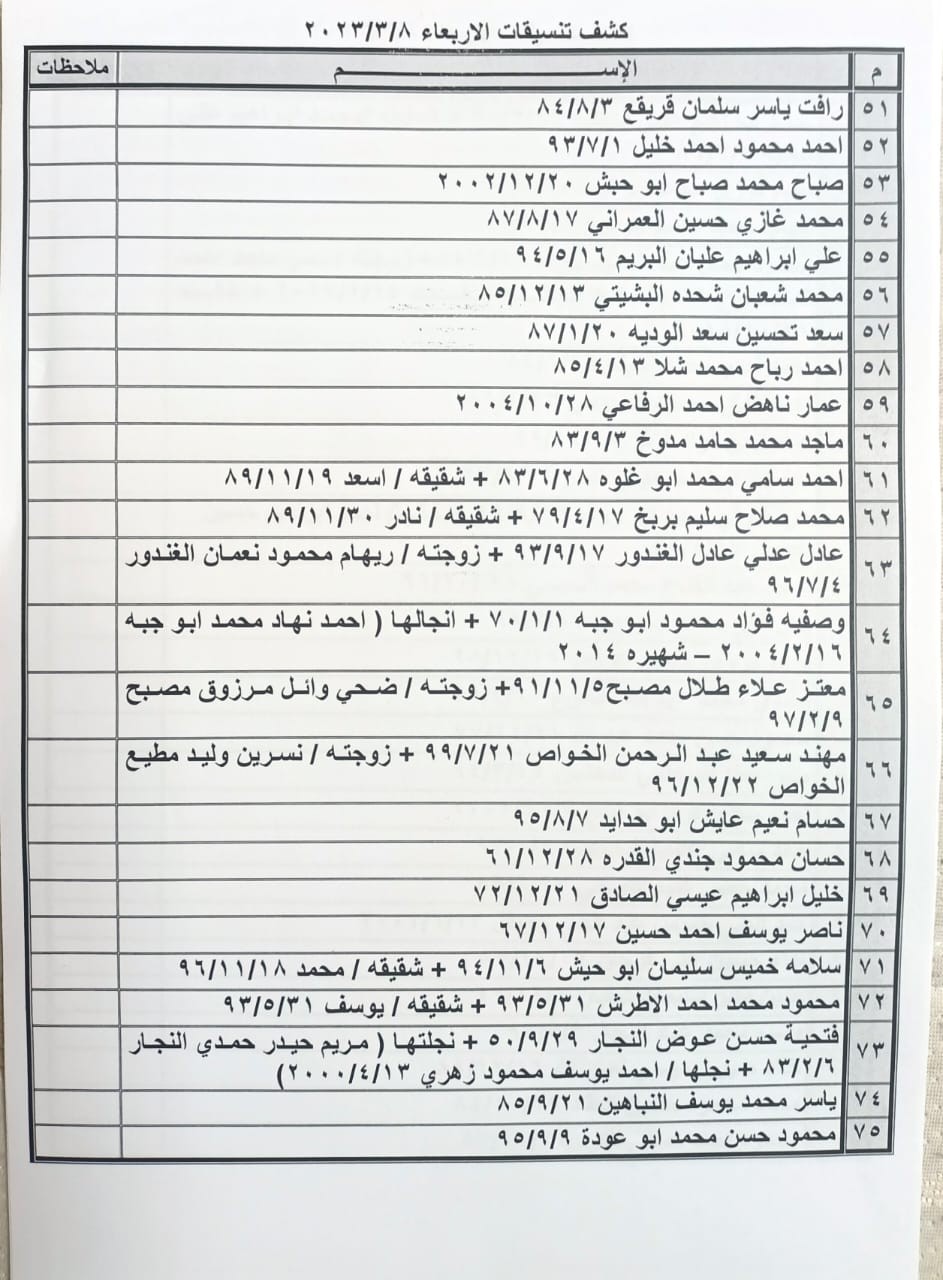 كشف تنسيقات الاربعاء ٢٠٢٣/٣/٨
م الإســـــم ملاحظات
٥١ رافت ياسر سلمان قريقع ٨٤/٨/٣
٥٢ احمد محمود احمد خليل ٩٣/٧/١
٥٣ صباح محمد صباح ابو حبش ٢٠٠٢/١٢/٢٠
٥٤ محمد غازي حسين العمراني ٨٧/٨/١٧
٥٥ علي ابراهيم عليان البريم ٩٤/٥/١٦
٥٦ محمد شعبان شحده البشيتي ٨٥/١٢/١٣
٥٧ سعد تحسين سعد الوديه ٨٧/١/٢٠
٥٨ احمد رباح محمد شلا ٨٥/٤/١٣
٥٩ عمار ناهض احمد الرفاعي ٢٠٠٤/١٠/٢٨
٦٠ ماجد محمد حامد مدوخ ٨٣/٩/٣
٦١ احمد سامي محمد ابو غلوه ٨٣/٦/٢٨ + شقيقه / اسعد ٨٩/١١/١٩
٦٢ محمد صلاح سليم بربخ ٧٩/٤/١٧ + شقيقه / نادر ٨٩/١١/٣٠
٦٣ عادل عدلي عادل الغندور ٩٣/٩/١٧ + زوجته / ريهام محمود نعمان الغندور
٩٦/٧/٤
٦٤ وصفيه فؤاد محمود ابو جبه ٧٠/١/١ + انجالها ( احمد نهاد محمد ابو جبه
٢٠٠٤/٢/١٦ – شهيره ٢٠١٤
٦٥ معتز علاء طلال مصبح٩١/١١/٥+ زوجته / ضحي وائل مرزوق مصبح
٩٧/٢/٩
٦٦ مهند سعيد عبد الرحمن الخواص ٩٩/٧/٢١ + زوجته / نسرين وليد مطيع
الخواص ٩٦/١٢/٢٢
٦٧ حسام نعيم عايش ابو حدايد ٩٥/٨/٧
٦٨ حسان محمود جندي القدره ٦١/١٢/٢٨
٦٩ خليل ابراهيم عيسي الصادق ٧٢/١٢/٢١
٧٠ ناصر يوسف احمد حسين ٦٧/١٢/١٧
٧١ سلامه خميس سليمان ابو حيش ٩٤/١١/٦ + شقيقه / محمد ٩٦/١١/١٨
٧٢ محمود محمد احمد الاطرش ٩٣/٥/٣١ + شقيقه / يوسف ٩٣/٥/٣١
٧٣ فتحية حسن عوض النجار ٥٠/٩/٢٩ + نجلتها ( مريم حيدر حمدي النجار
٨٣/٢/٦ + نجلها / احمد يوسف محمود زهري ٢٠٠٠/٤/١٣)
٧٤ ياسر محمد يوسف النباهين ٨٥/٩/٢١
٧٥ محمود حسن محمد ابو عودة ٩٥/٩/٩